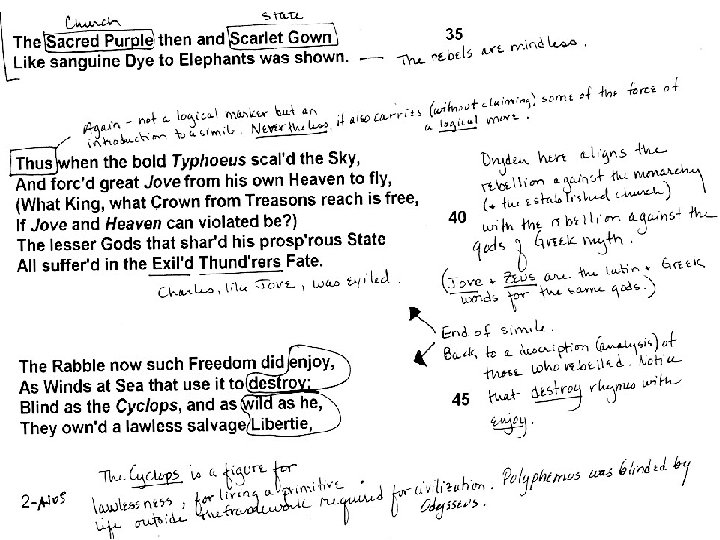 Church
State
The Sacred Purple then and Scarlet Gown
35
Like sanguine Dye to Elephants was shown. — The rebels are mindless.
Again - not a logical marker but an
introduction to a simile. Nevertheless, it also carries (without claiming) some of the force of
a logical move.
Thus when the bold Typhoeus scal'd the Sky,
And forc'd great Jove from his own Heaven to fly,
(What King, what Crown from Treasons reach is free,
40
If Jove and Heaven can violated be?)
The lesser Gods that shar'd his prosp'rous State
All suffer'd in the Exil'd Thund'rers Fate.
Charles, like Jove, was exiled.
Dryden here aligns the
rebellion against the monarchy
(+ the established church)
with the rebellion against the
gods of Greek myth.
(Jove + Zeus are the latin + Greek
words for the same gods.)
End of simile.
Back to a description (analysis) of
those who rebelled. Notice
that destroy rhymes with
enjoy.
The Rabble now such Freedom did enjoy,
As Winds at Sea that use it to destroy:
45
Blind as the Cyclops, and as wild as he,
They own'd a lawless salvage Libertie,
The Cyclops is a figure for
lawlessness, for living a primitive
life outside the framework required for civilization. Polyphemus was blinded by
Odysseus.
2-